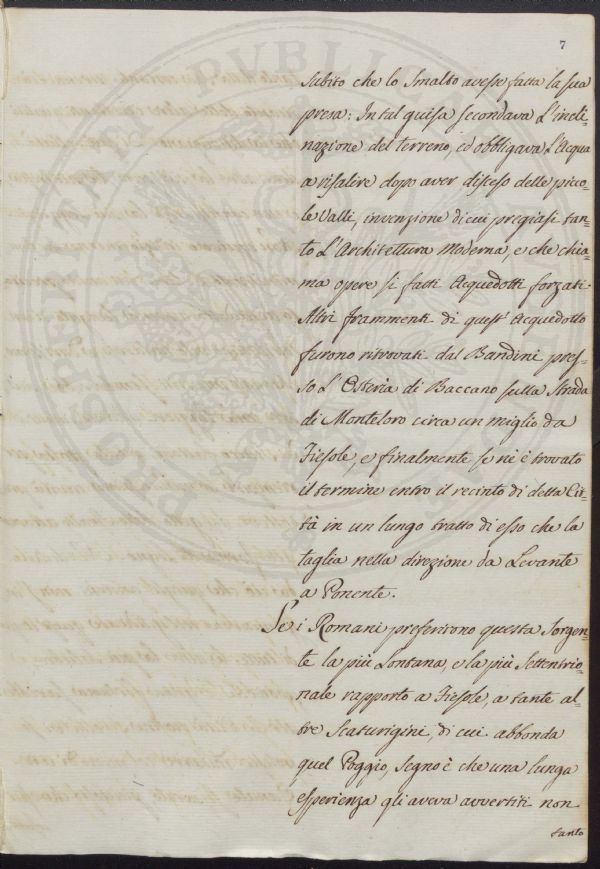 7
subito che lo Smalto avesse fatta la sua
presa: In tal guisa secondava L'incli=
nazione del terreno, ed obbligava L'Acqua
a risalire dopo aver disceso delle pico=
le Valli, invenzione di cui pregiasi tan=
to L'Architettura Moderna, e che chia=
ma opere si fatti Acquedotti forzati.
Altri frammenti di quest' Acquedotto
furono ritrovati dal Bandini pres=
so L'Osteria di Baccano sulla Strada
di Monteloro circa un miglio da
Fiesole, e finalmente se n'è trovato
il termine entro il recinto di detta Cit=
tà in un lungo tratto di esso che la
taglia nella direzione da Levante
a Ponente.
Se i Romani preferirono questa Sorgen=
te la più Lontana, e la più Settentrio=
nale rapporto a Fiesole, a tante al=
tre Scaturigini, di cui abbonda
quel Poggio, segno è che una lunga
esperienza gli aveva avvertiti non
tanto
PROSPERI STATI PVBLICA